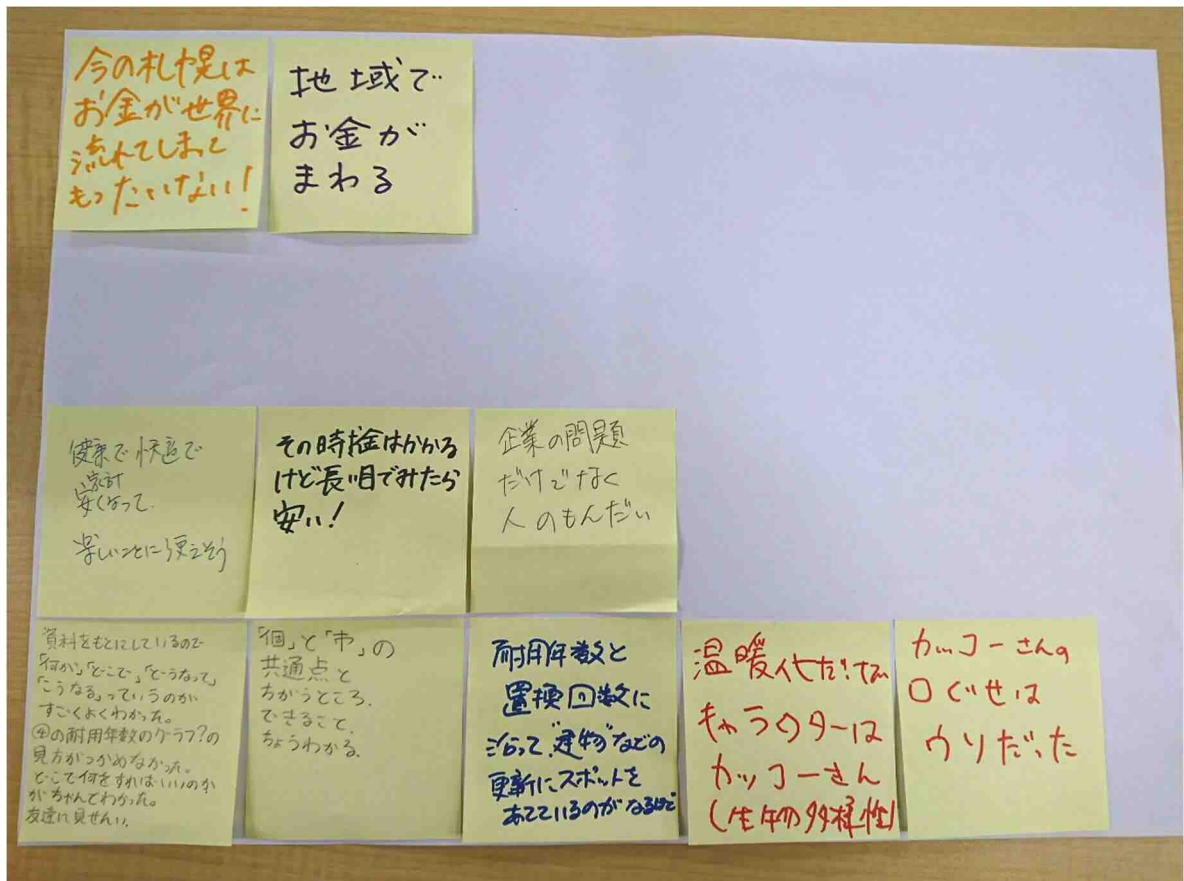 今の札幌は
お金が世界に
流れてしまって
もったいない!
地域で
お金が
まわる
健康で快適で
家計
安くなって
楽しいことに使えそう
その時お金はかかる
けど長い目でみたら
安い!
企業の問題
だけでなく
人のもんだい
資料をもとにしているので
「何が」「どこで」「どうなって」
「こうなる」っていうのが
すごくよくわかった。
④の耐用年数のグラフ?の
見方がつかめなかった。
どこで何をすればいいのか
がちゃんとわかった。
友達に見せたい。
「個」と「市」の
共通点と
ちがうところ、
できること、
ちょうわかる。
耐用年数と
置換回数に
沿って"建物"などの
更新にスポットを
あてているのがなるほど
温暖化だけな
キャラクターは
カッコーさん
(生物多様性)
カッコーさんの
口ぐせは
ウソだった